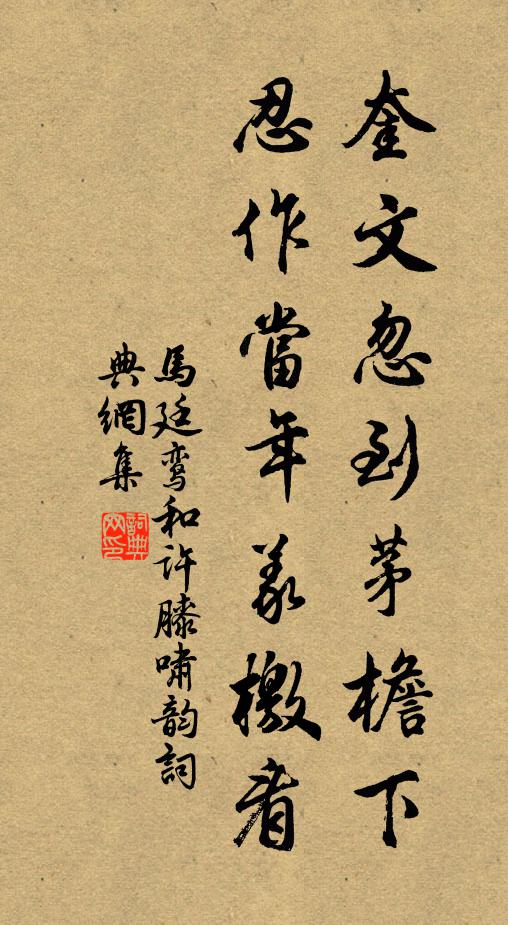 奎文忽到茅檐下
忍作當年羕檄看
馬廷鸾和许滕啸韵詞
典網集
詞典網印